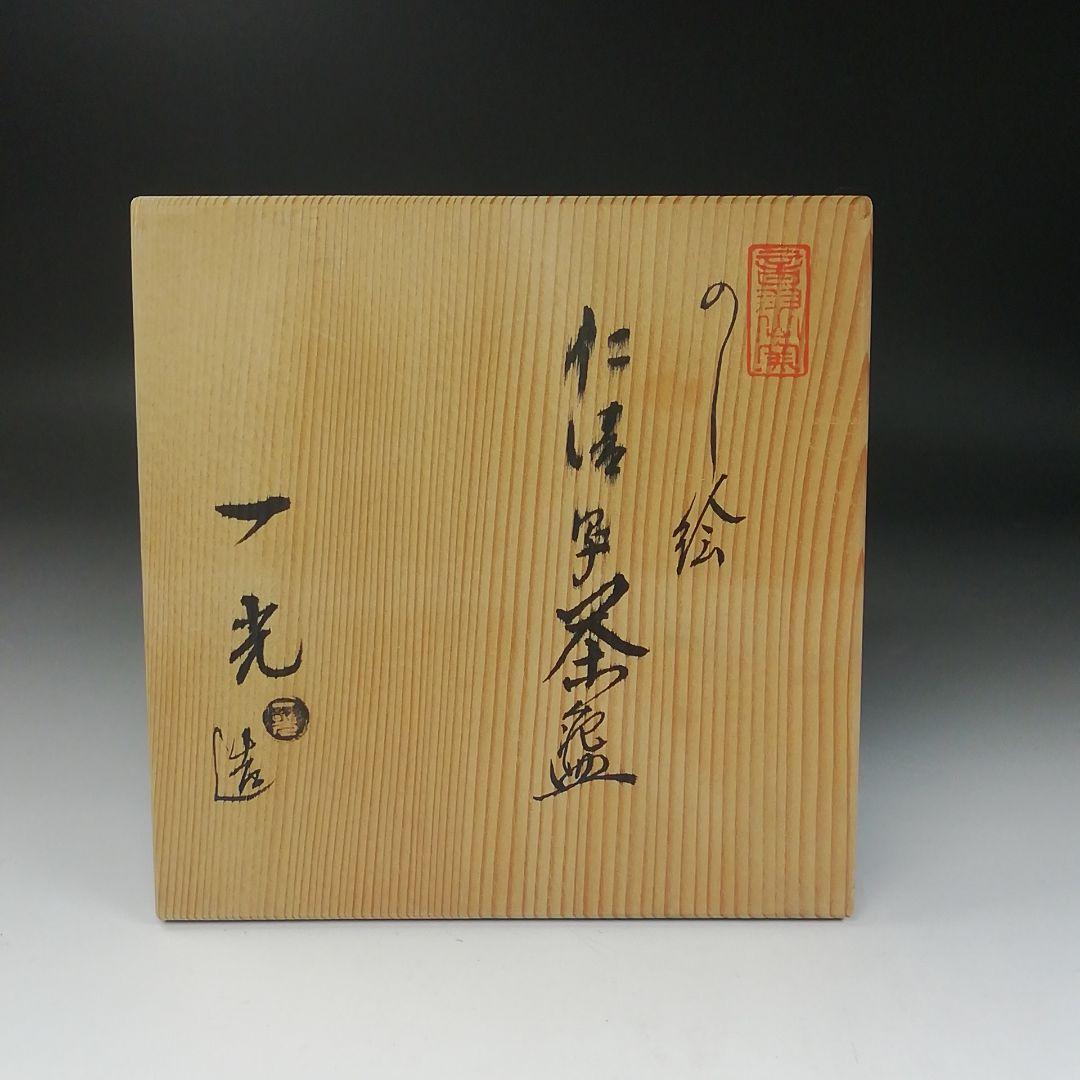 のし絵
仁清写茶盌
一光造